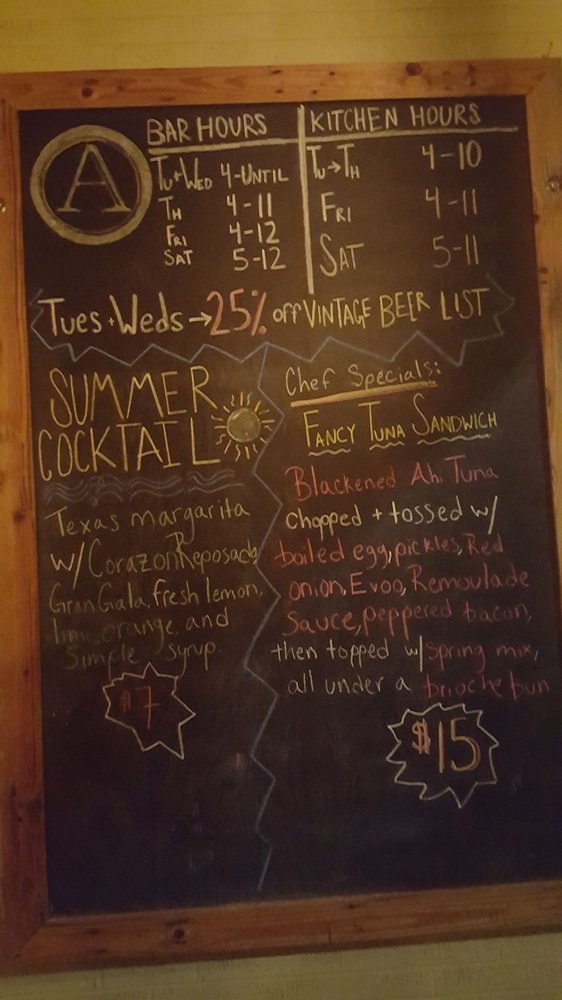 A
BAR HOURS
Tu+Wed 4-UNTIL
TH 4-11
FRI 4-12
SAT 5-12
KITCHEN HOURS
Tu→TH 4-10
FRI 4-11
SAT 5-11
Tues+Weds→25% off VINTAGE BEER LIST
SUMMER
COCKTAIL
Texas margarita
w/ Corazon Reposado
Gran Gala, fresh lemon,
lime, orange, and
Simple syrup.
$7
Chef Specials:
FANCY TUNA SANDWICH
Blackened Ahi Tuna
chopped + tossed w/
boiled egg, pickles, Red
onion, Evoo, Remoulade
Sauce, peppered bacon,
then topped w/ spring mix,
all under a brioche bun
$15